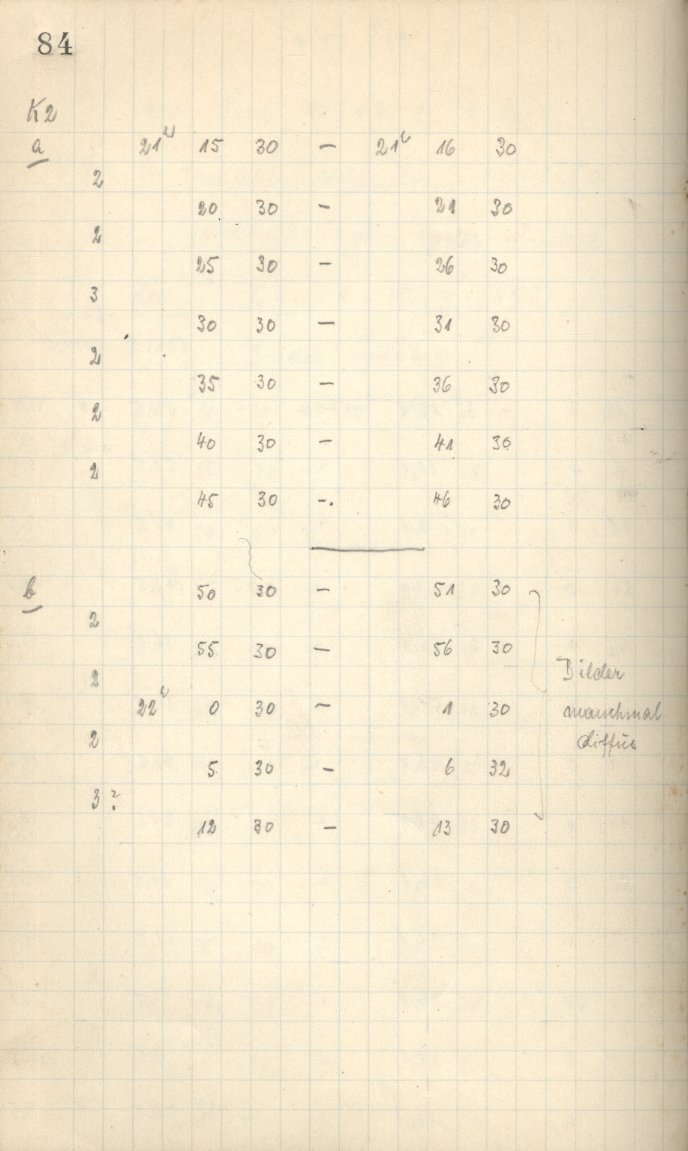 84
K2
a 21ʰ 15 30 – 21ʰ 16 30
2
20 30 – 21 30
2
25 30 – 26 30
3
30 30 – 31 30
2
35 30 – 36 30
2
40 30 – 41 30
2
45 30 –. 46 30
b 50 30 – 51 30
2
55 30 – 56 30
2
22ʰ 0 30 – 1 30
2
5 30 – 6 32
3?
12 30 – 13 30
Bilder
manchmal
diffus